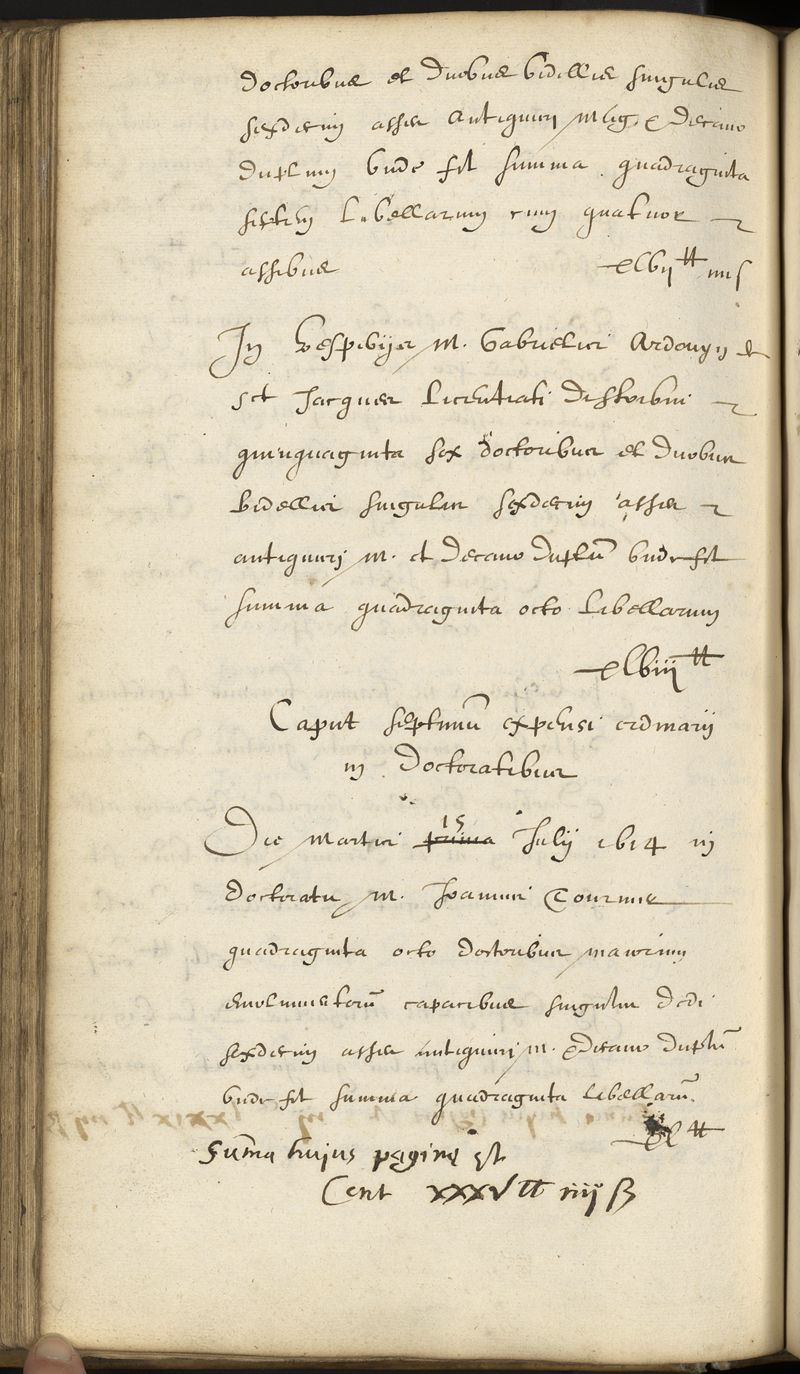 doctoribus et duobus bidellis singulis
sexdecim asses antiquiori mag. & decano
duplum unde fit summa quadraginta
septem libellarum cum quatuor
assibus xlvii ℔ iiii s
In vesperiis M. Gabrielis Ardouyn et
Jacques licentiati distribui
quinquaginta sex doctoribus et duobus
bidellis singulis sexdecim asses
antiquiori M. et decano duplū unde fit
summa quadraginta octo libellarum
xlviii ℔
Caput septimū expensi ordinarii
in Doctoratibus
Die martis prima 15 Julij 1614 in
doctoratu M. Joannis Tournus
quadraginta octo doctoribus maiorum
emolumentorū capacibus singulis dedi
sexdecim asses antiquiori M. & decano duplū
unde fit summa quadraginta libellarū.
xl ℔
Sum̄a huius paginę est
Cent xxxv ℔ iiij ß